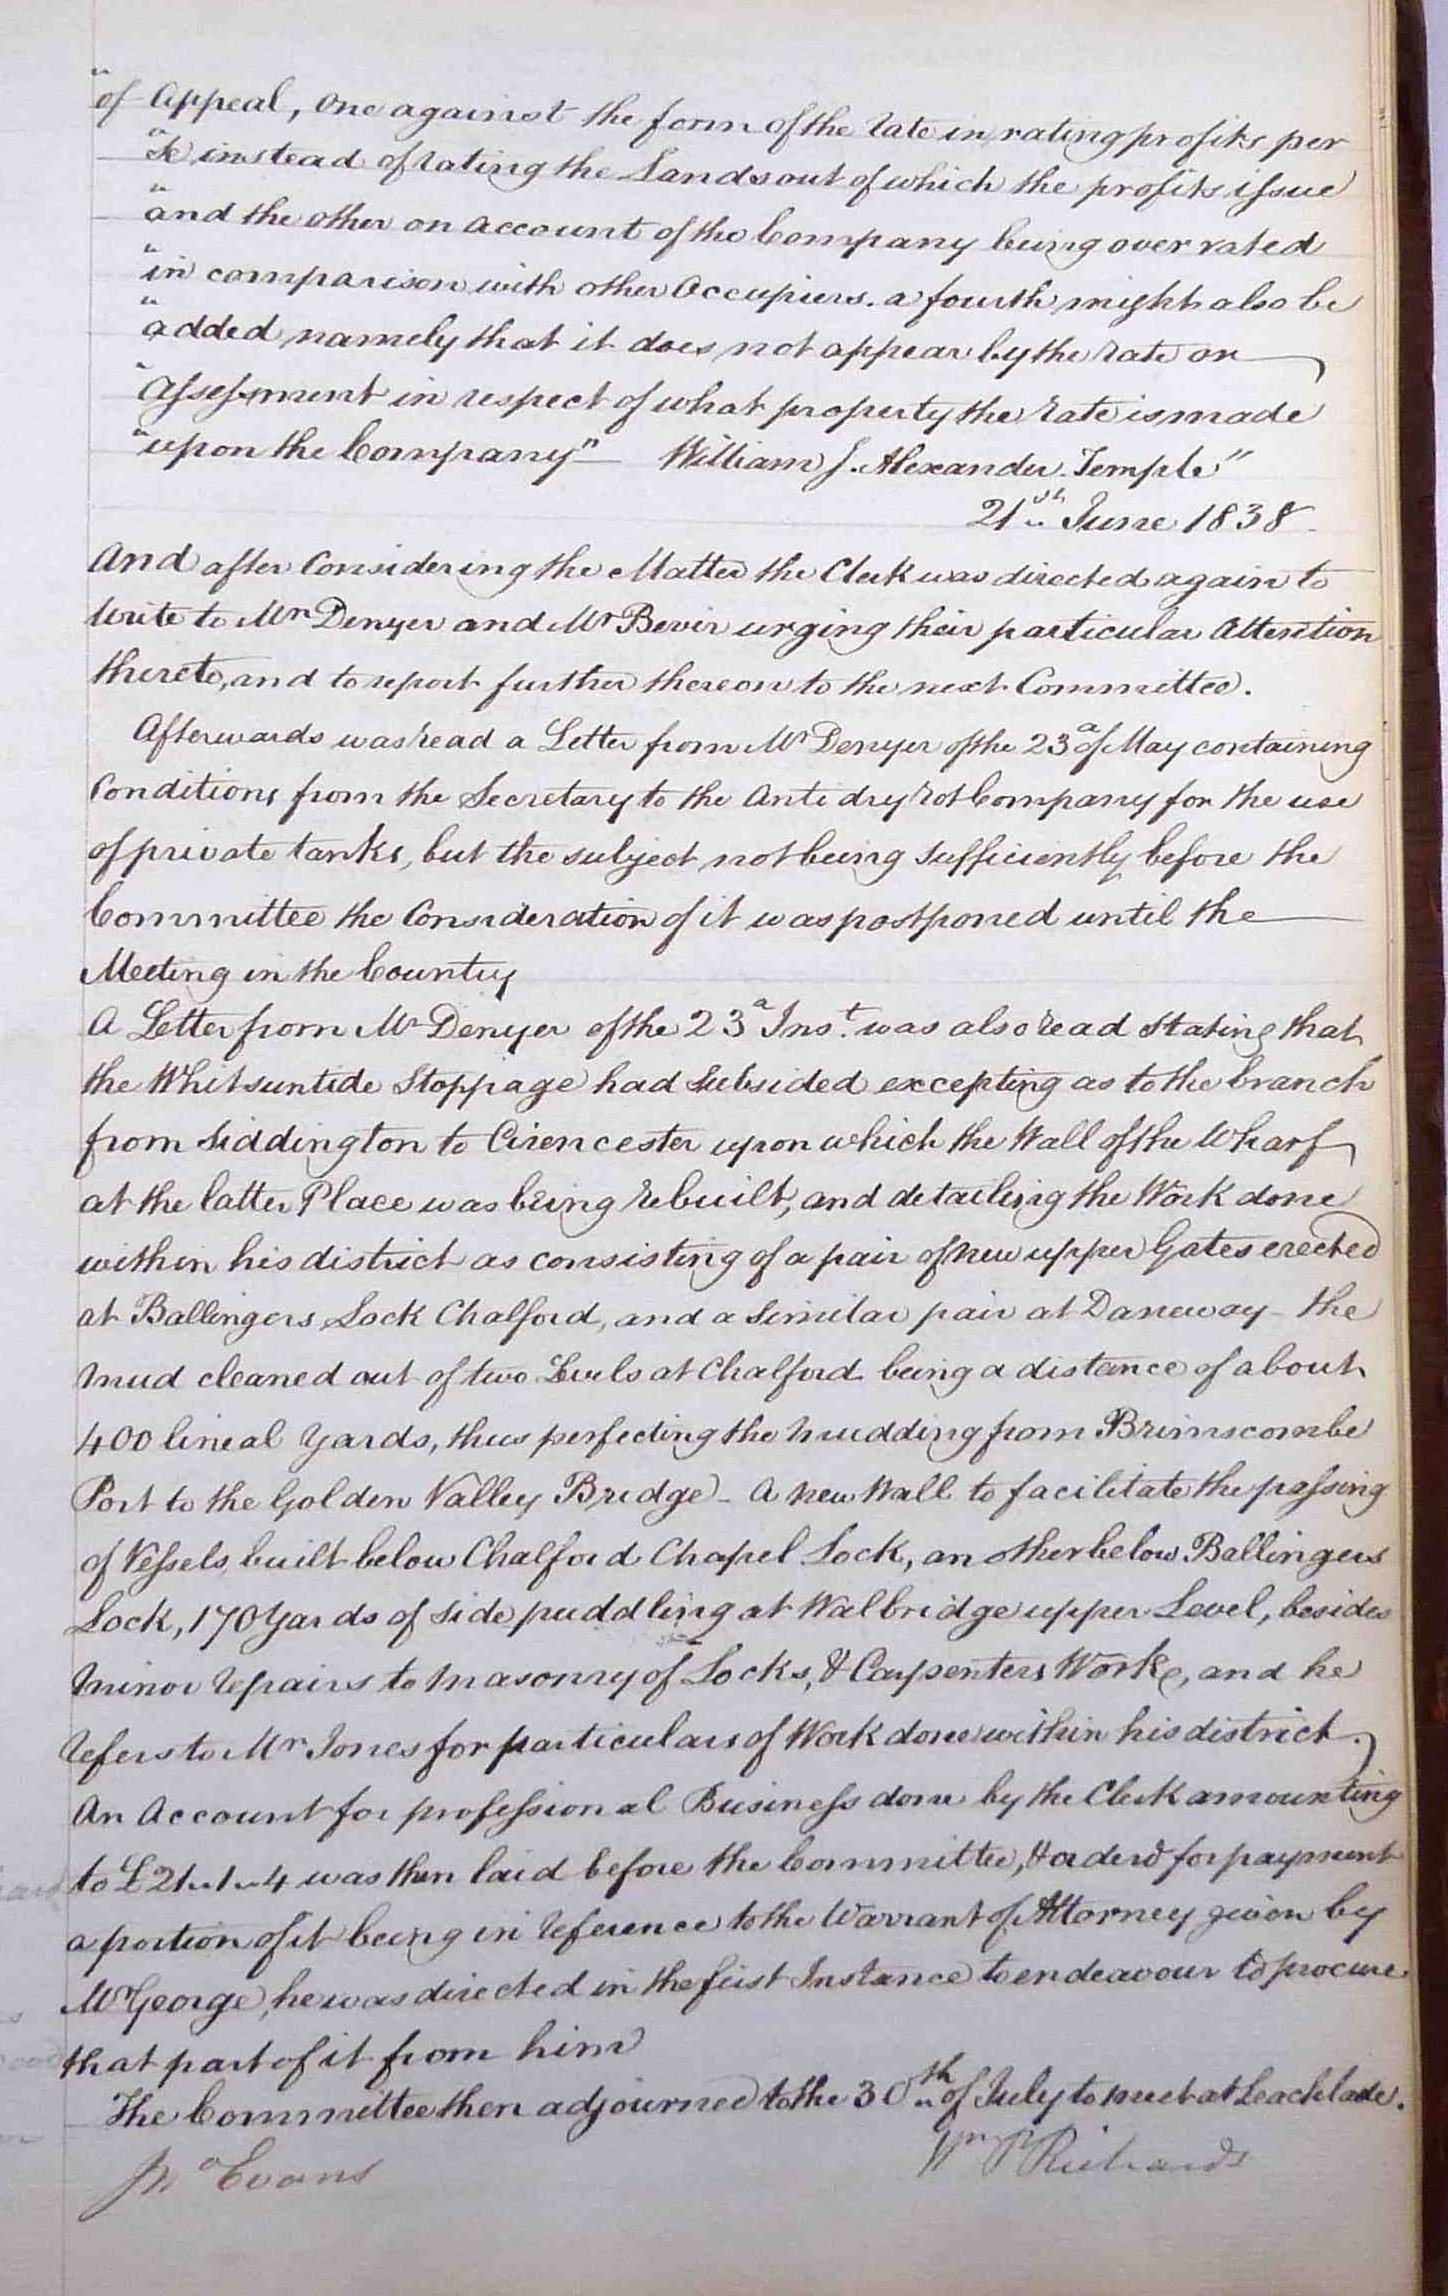 "of Appeal, One against the form of the rate in rating profits per
"Se instead of rating the Lands out of which the profits issue
"and the other on account of the Company being over rated
"in comparison with other Occupiers. a fourth might also be
"added namely that it does not appear by the rate or
"Assessment in respect of what property the rate is made
"upon the Company" — William J. Alexander. Temple"
21st June 1838.
And after Considering the Matter the Clerk was directed again to
Write to Mr Denyer and Mr Bevir urging their particular Attention
thereto, and to report further thereon to the next Committee.
Afterwards was read a Letter from Mr Denyer of the 23d of May containing
Conditions from the Secretary to the Anti dry rot Company for the use
of private tanks, but the subject not being sufficiently before the
Committee the Consideration of it was postponed until the
Meeting in the Country
A Letter from Mr Denyer of the 23d Inst. was also read Stating that
the Whitsuntide Stoppage had Subsided excepting as to the branch
from Siddington to Cirencester upon which the Wall of the Wharf
at the latter Place was being rebuilt, and detailing the Work done
within his district as consisting of a pair of new upper Gates erected
at Ballingers Lock Chalford, and a Similar pair at Daneway - the
Mud cleaned out of two Levels at Chalford being a distance of about
400 lineal Yards, thus perfecting the Mudding from Brimscombe
Port to the Golden Valley Bridge - A New Wall to facilitate the passing
of Vessels, built below Chalford Chapel Lock, an other below Ballingers
Lock, 170 Yards of Side puddling at Walbridge upper Level, besides
Minor repairs to Masonry of Locks, & Carpenters Work, and he
refers to Mr Jones for particulars of Work done within his district.
An Account for professional Business done by the Clerk amounting
to £21..1..4 was then laid before the Committee, & orderd for payment
a portion of it being in reference to the Warrant of Attorney given by
Mr George, he was directed in the first Instance to endeavour to procure
that part of it from him
The Committee then adjourned to the 30th of July to meet at Leachlade.
Jno Evans Wm P Richards